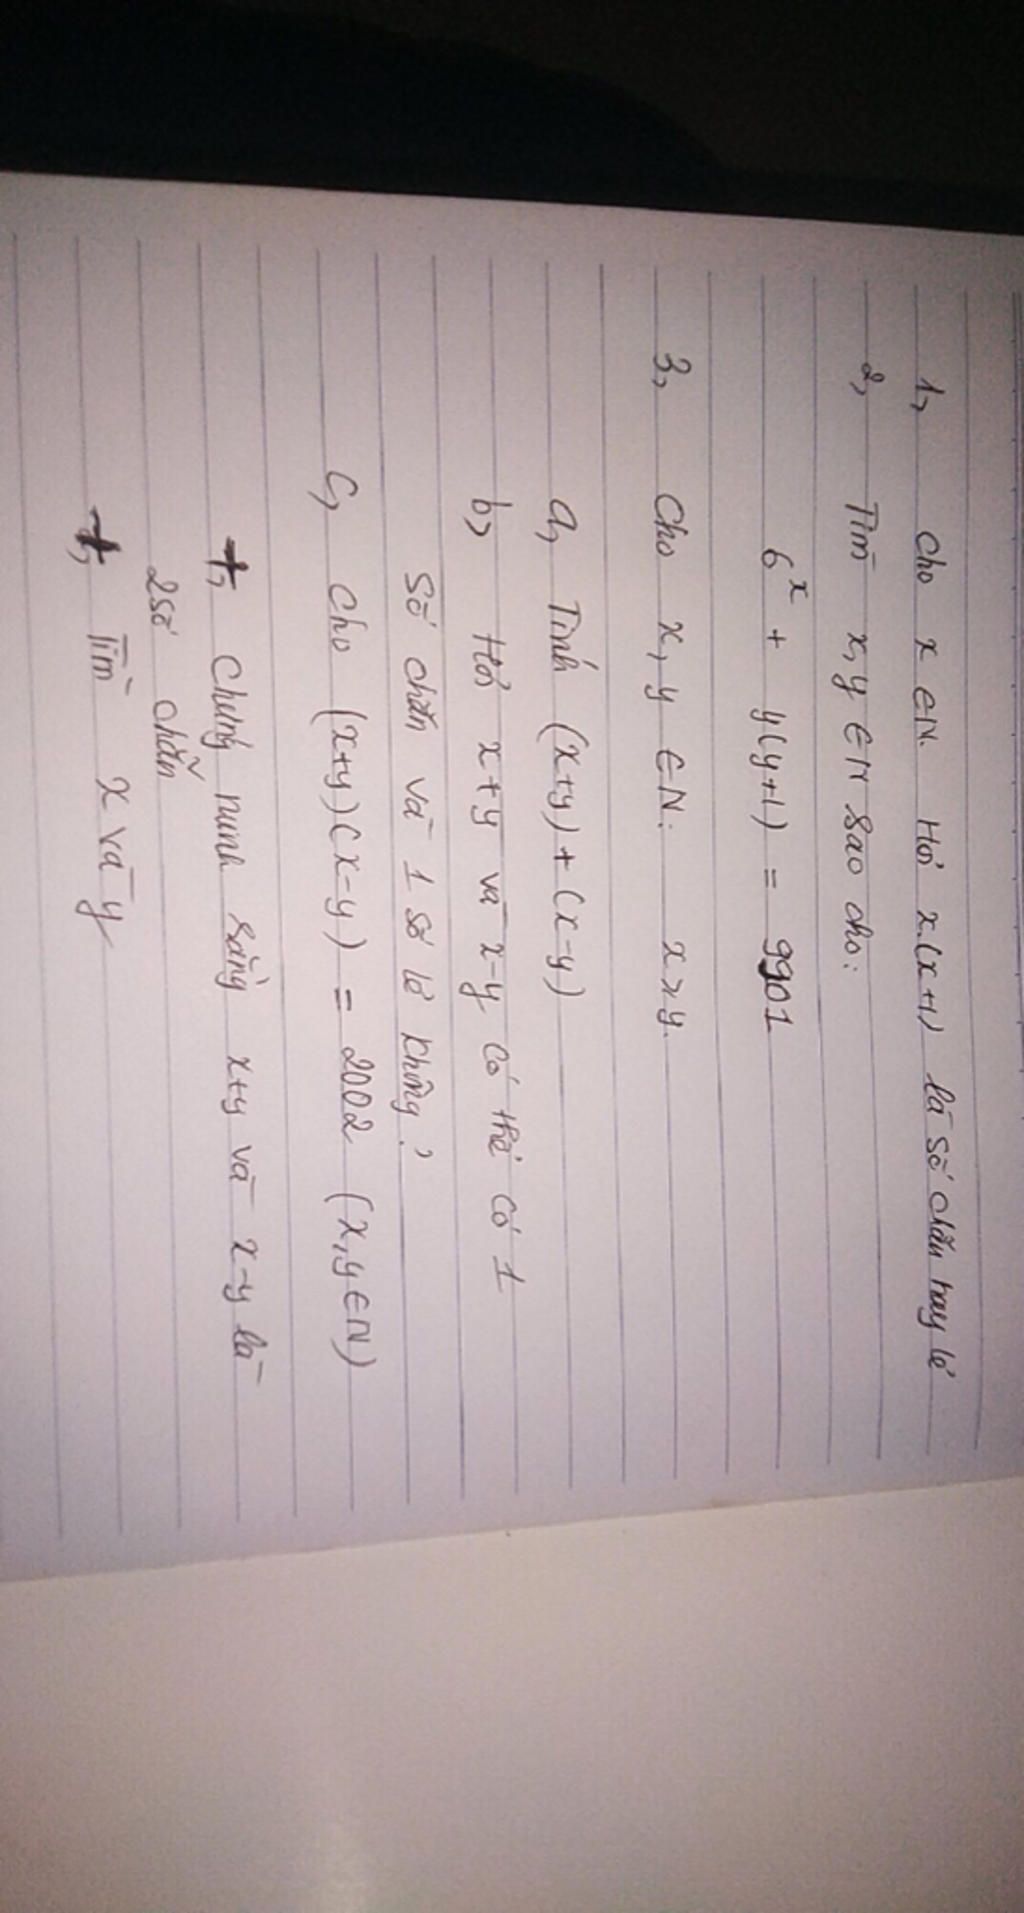 1, Cho x ∈ N. Hỏi x.(x+1) là số chẵn hay lẻ
2, Tìm x, y ∈ N sao cho:
6^x + y(y+1) = 9901
3, Cho x, y ∈ N: x > y.
a, Tính (x+y) + (x-y)
b, Hỏi x+y và x-y có thể có 1
số chẵn và 1 số lẻ không?
c, Cho (x+y)(x-y) = 2002 (x, y ∈ N)
+, Chứng minh rằng x+y và x-y là
2 số chẵn
+, Tìm x và y